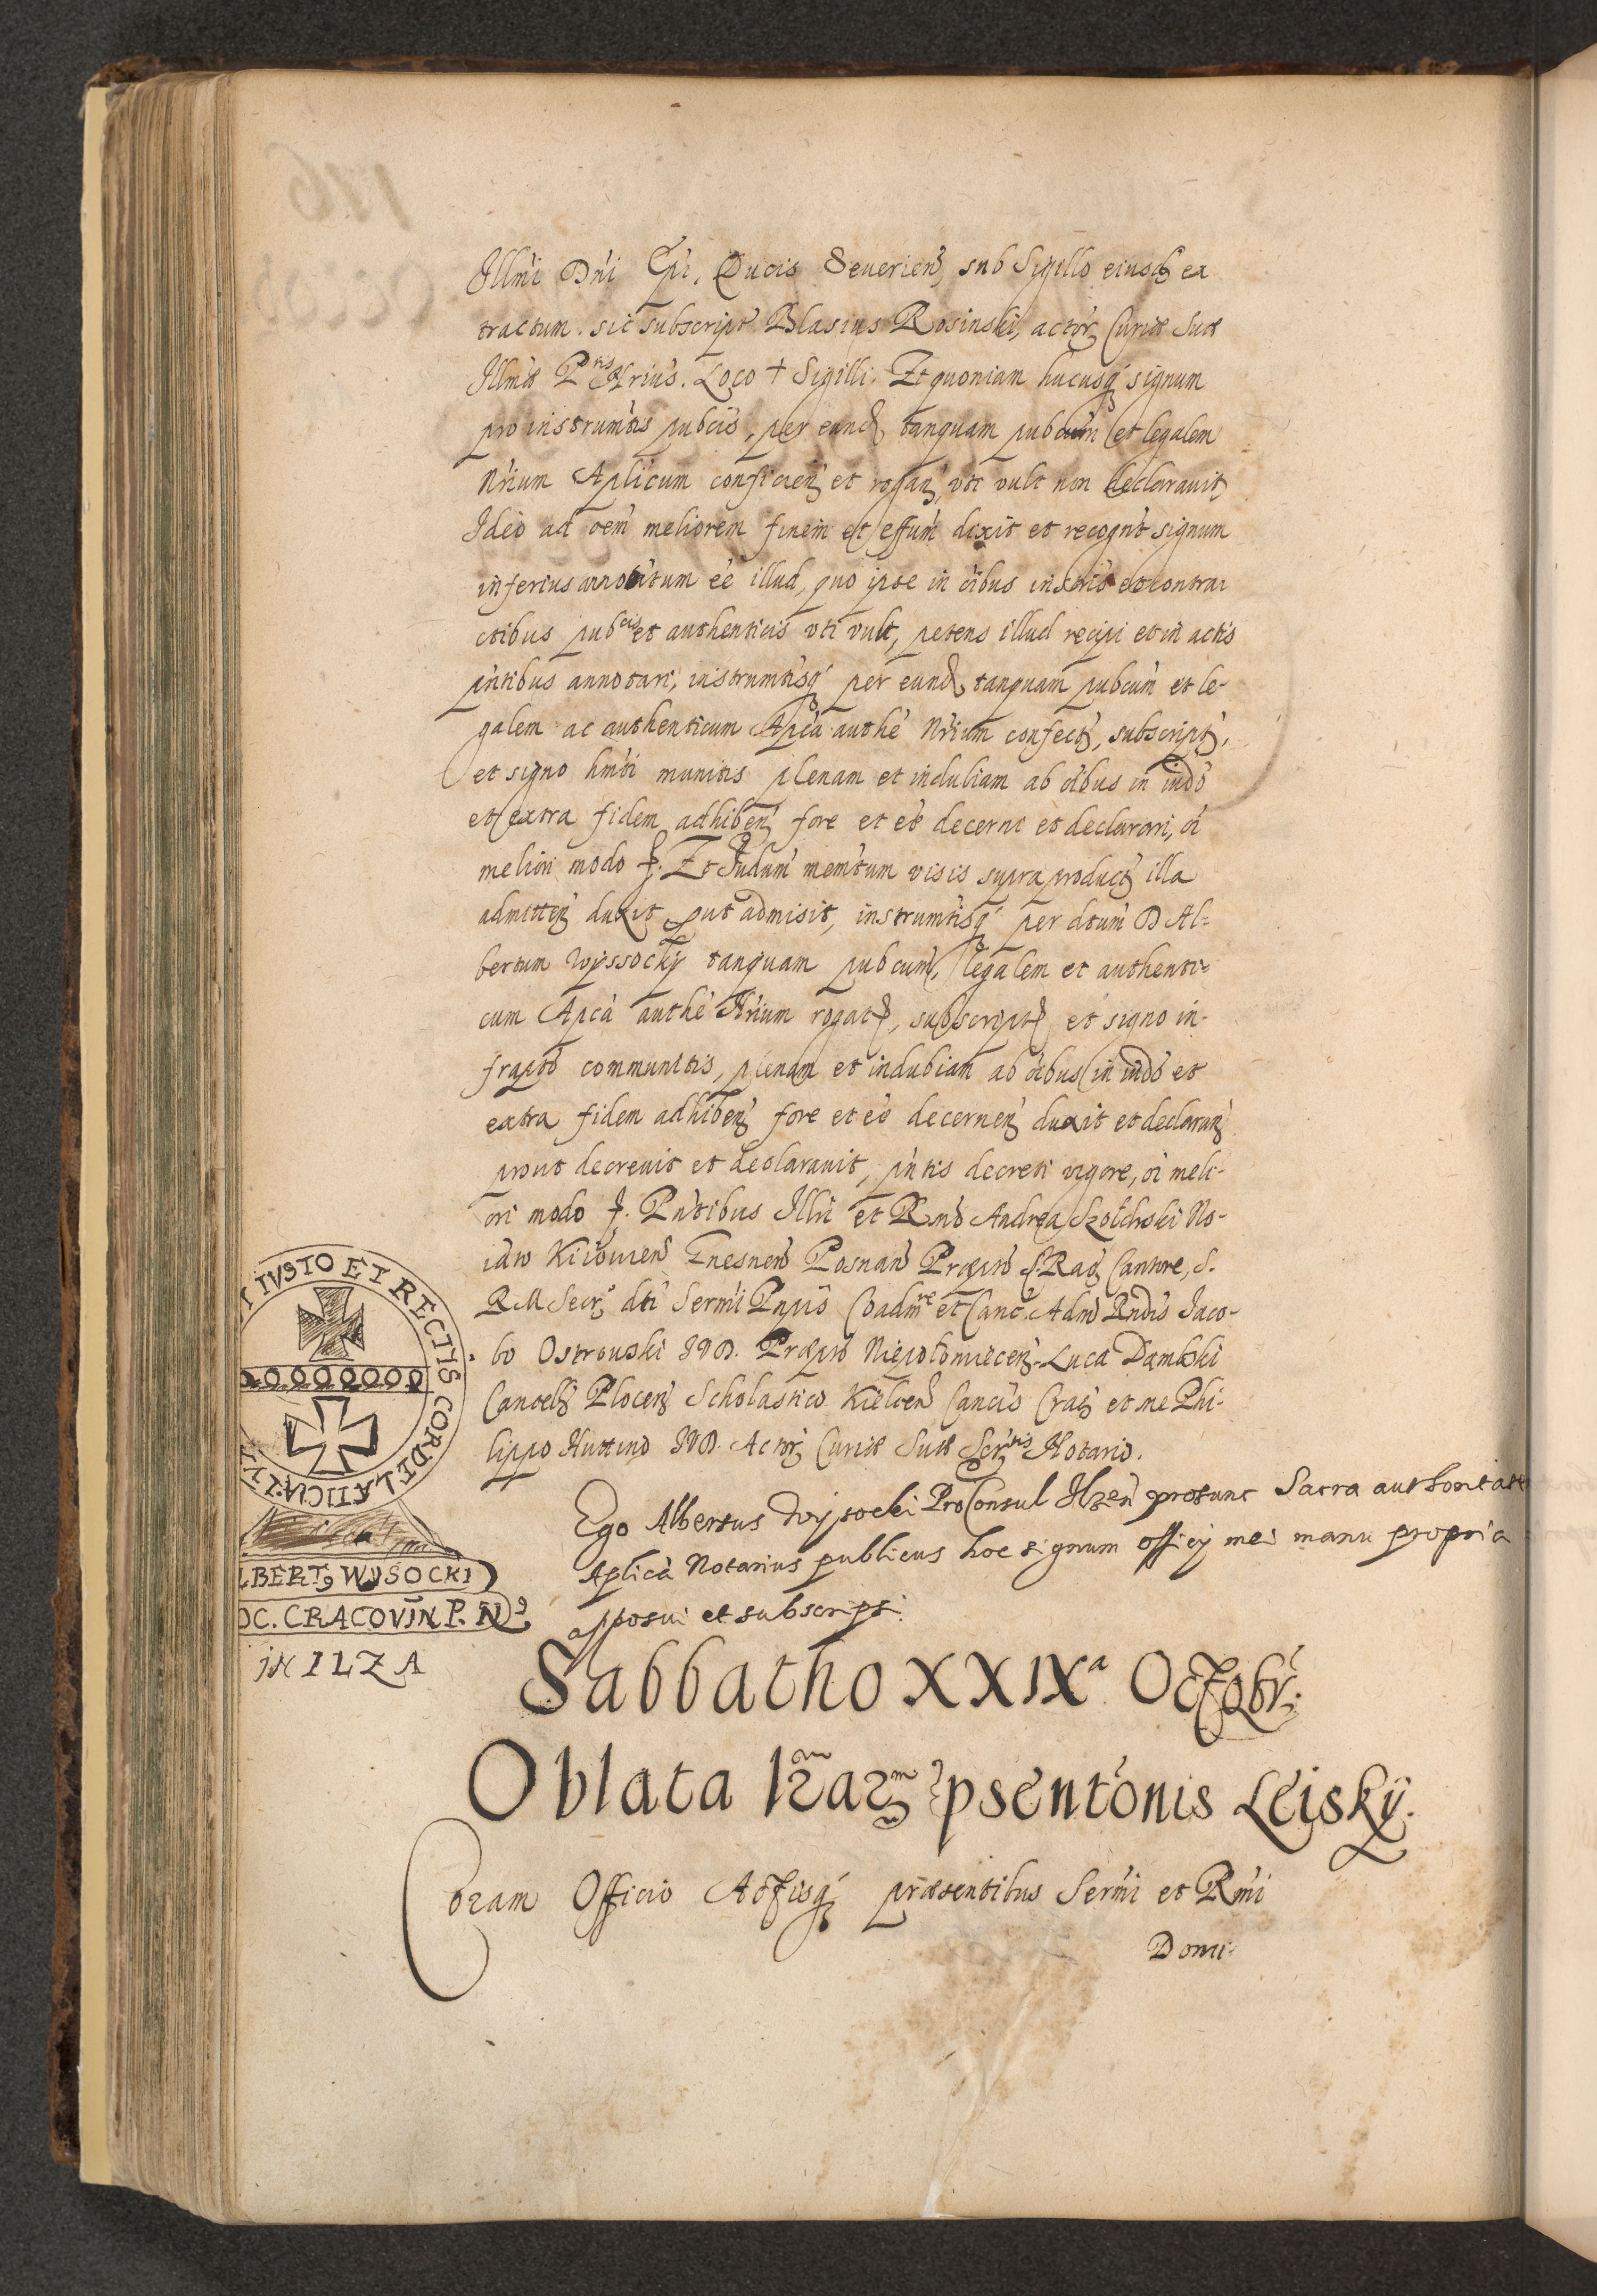 Illmi Dni Epi, Ducis Severien, sub Sigillo eiusd ex
tractum. sic subscript Blasius Rosinski, actor Curiæ Suæ
Illmæ Ptis Nrius. Loco + Sigilli. Et quoniam hucusq signum
pro instrumtis pubcis, per eund tanquam pubcum et legalem
Nrium Aplicum conficien et rogan, vti vult non declaravit
Ideo ad oem meliorem finem et effum dixit et recognt signum
inferius annotatum ee illud, quo ipse in oibus instris et contra
ctibus pubcis et authenticis vti vult, petens illud recipi et in actis
pntibus annotari, instrumtisq per eund tanquam pubcum et le-
galem ac authenticum Apca authe Nrium confect, subscript,
et signo hmti munitis plenam et indubiam ab oibus in iudo
et extra fidem adhiben fore et ee decerni et declarari, oi
meliori modo
Et Iudum memtum visis supra product illa
admitten duxit put admisit, instrumtisq per dtum D Al-
bertum Wyssocky tanquam pubcum, legalem et authenti-
cum Apca authe Nrium rogat, subscript et signo in-
frapto communitis, plenam et indubiam ab oibus in iudo et
extra fidem adhiben fore et ee decernen duxit et declaran
prout decrevit et declaravit, pntis decreti vigore, oi meli-
ori modo
Pntibus Illri et Rndo Andrea Szołdrski No-
iato Kiioviens Gnesnen Posnan Præpto Cantore, S.
R M Secr dti Sermi Pnpis Coadmre et Canc. Adm Rndis Iaco-
bo Ostrowski IVD. Præpto Niepołomicen. Luca Dąmbski
Cancell Plocen Scholastico Kielcen Cancis Crac et me Phi-
lippo Huttino IVD. Actor Curiæ Suæ Sertis Notario.
IVSTO ET RECTIS CORDE LÆTICIA
Ego Albertus Wysocki ProConsul Ilzen protunc Sacra authoritate
Aplica Notarius publicus hoc signum officy mei manu propria
apposui et subscripsi.
LBERT9 WYSOCKI
OC. CRACOVIN P. N9
iN ILZA
Sabbatho XXIXa Octobr.
Oblata lrar psentonis Leisky.
Coram Officio Actisq præsentibus Sermi et Rmi
Domi-